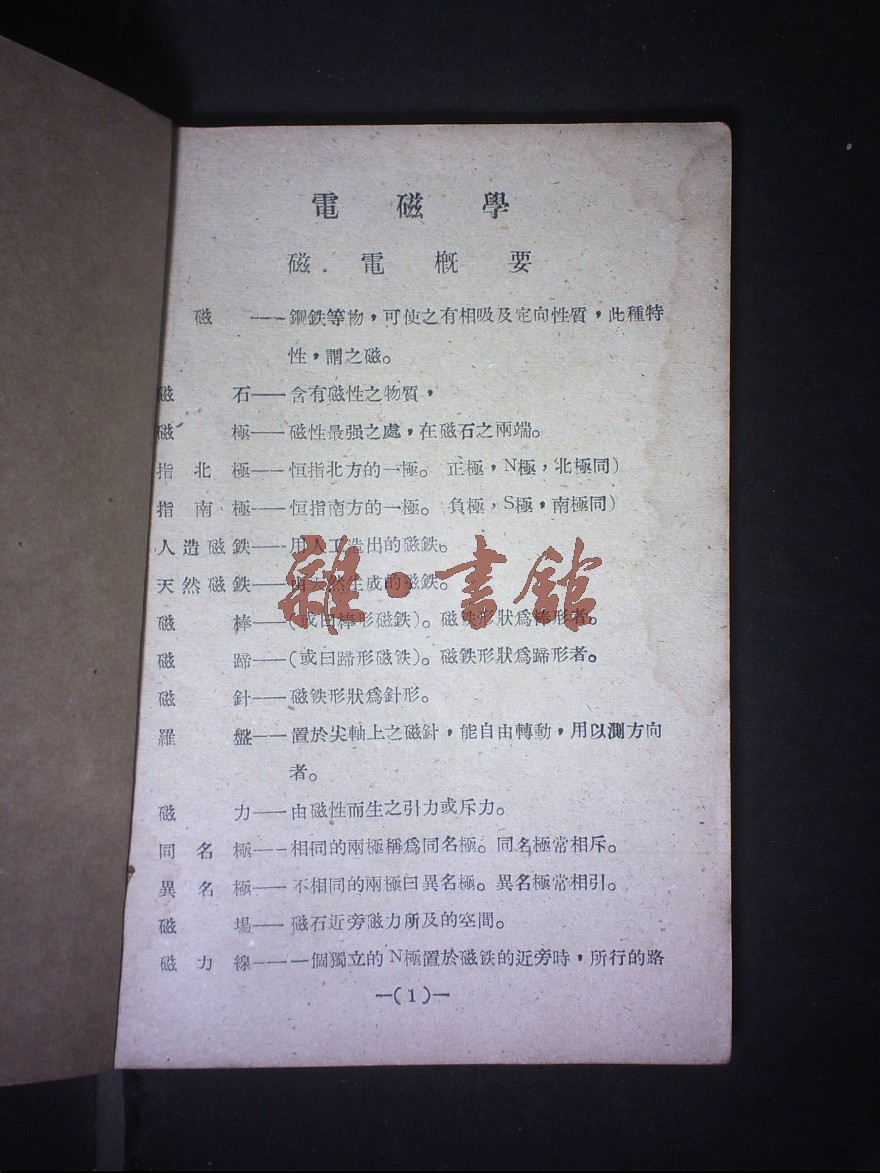 電磁學
磁電槪要
磁——鋼鉄等物，可使之有相吸及定向性質，此種特
性，謂之磁。
磁石——含有磁性之物質，
磁極——磁性最强之處，在磁石之兩端。
指北極——恒指北方的一極。 正極，N極，北極同)
指南極——恒指南方的一極。 負極，S極，南極同)
人造磁鉄——用人工造出的磁鉄。
天然磁鉄——由天然生成的磁鉄。
磁棒——(或曰棒形磁鉄)。磁鉄形狀爲棒形者。
磁蹄——(或曰蹄形磁鉄)。磁鉄形狀爲蹄形者。
磁針——磁鉄形狀爲針形。
羅盤——置於尖軸上之磁針，能自由轉動，用以測方向
者。
磁力——由磁性而生之引力或斥力。
同名極——相同的兩極稱爲同名極。同名極常相斥。
異名極——不相同的兩極曰異名極。異名極常相引。
磁場——磁石近旁磁力所及的空間。
磁力線——一個獨立的N極置於磁鉄的近旁時，所行的路
—(1)—
雜·書館